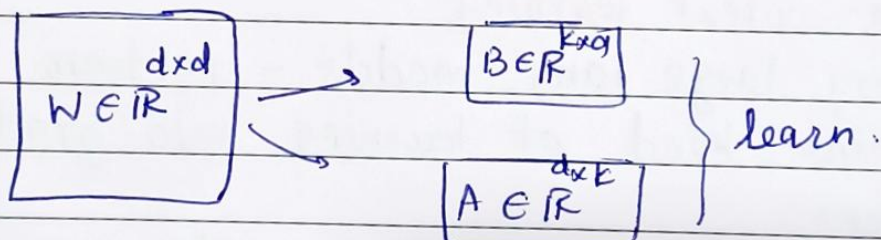 W ∈ ℝ^{d×d}
B ∈ ℝ^{k×d}
A ∈ ℝ^{d×k}
learn.